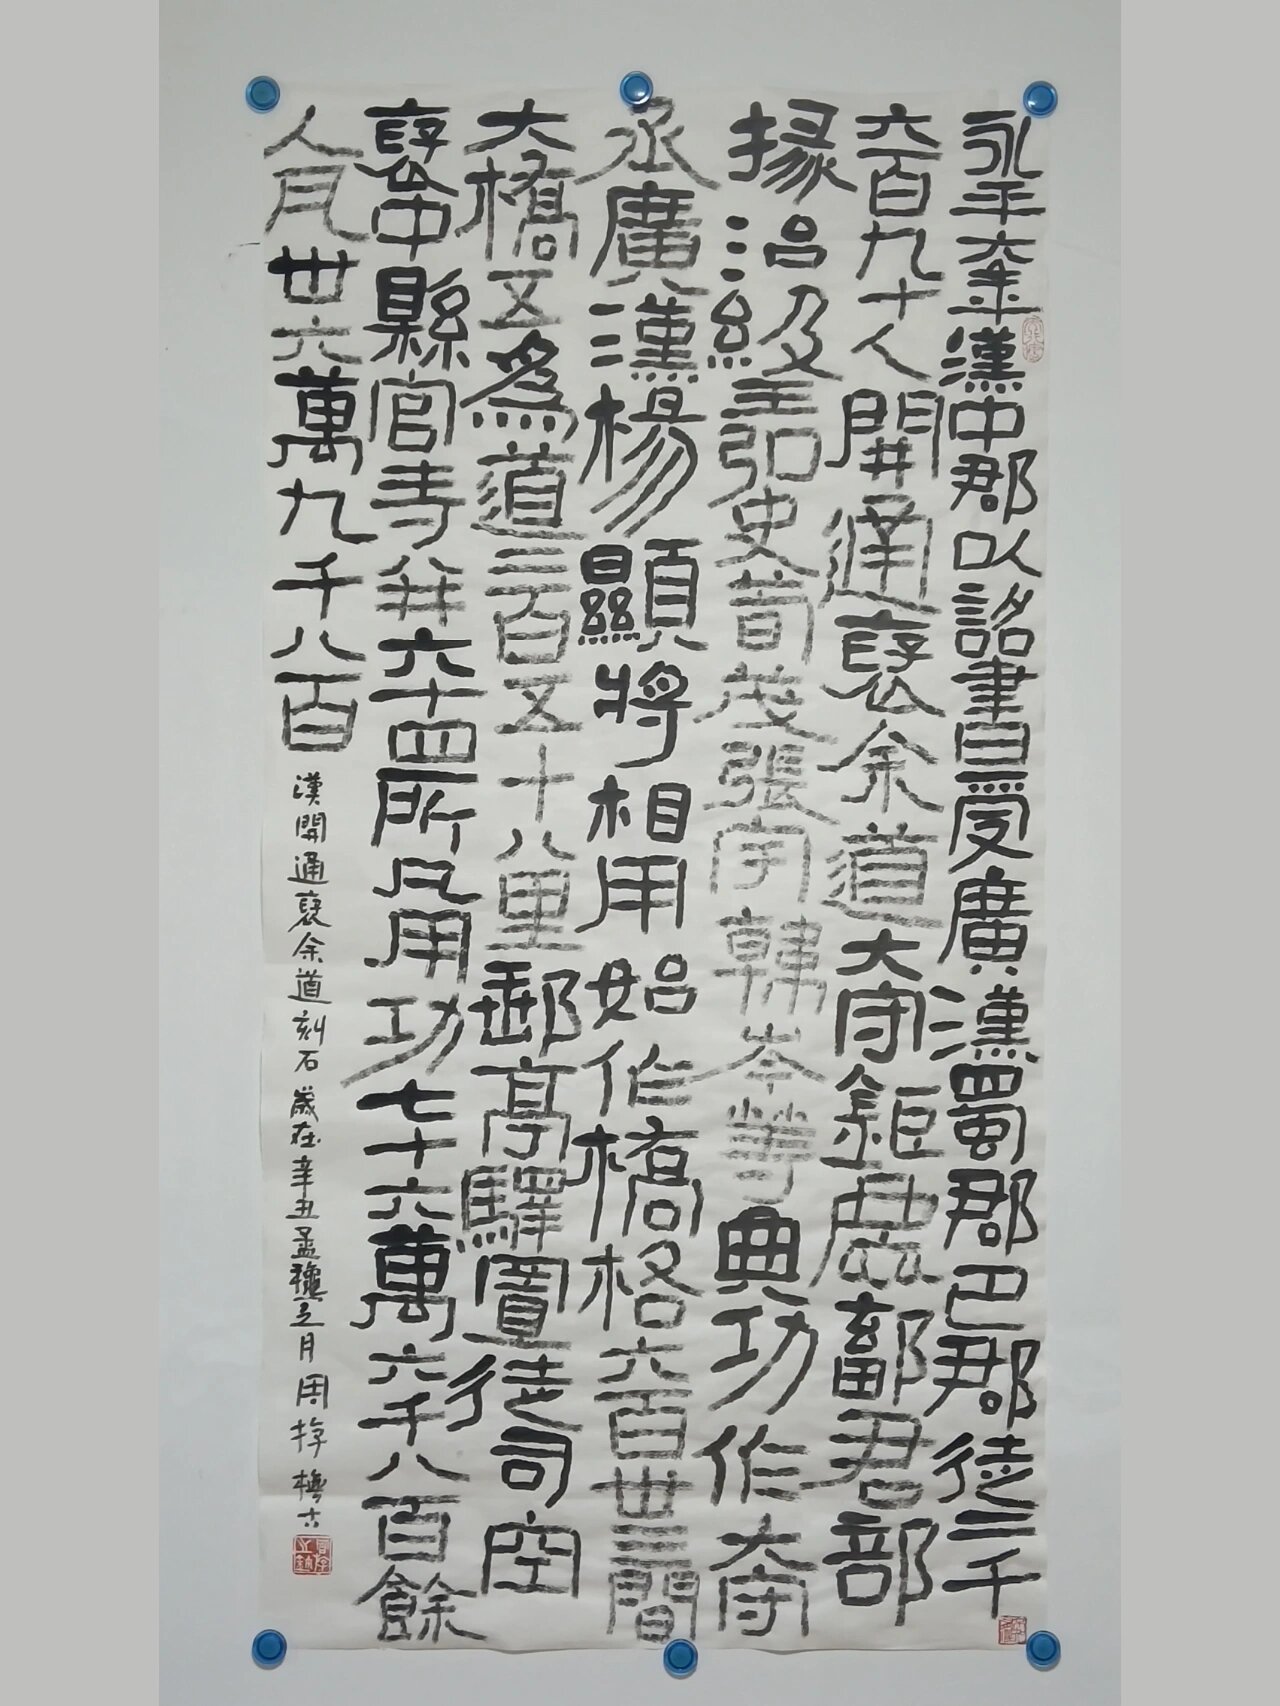 永平六年漢中郡以詔書受廣漢蜀郡巴郡徒二千
六百九十人開通褒余道太守鉅鹿鄐君部
掾治級王弘史荀茂張宇韓岑等典功作太守
丞廣漢楊顯將相用始作橋格六百卅三間
大橋五為道二百五十八里郵亭驛置徒司空
褒中縣官寺并六十四所凡用功七十六萬六千八百餘
人瓦卅六萬九千八百
漢開通褒余道刻石 歲在辛丑孟穐之月 周掙 古